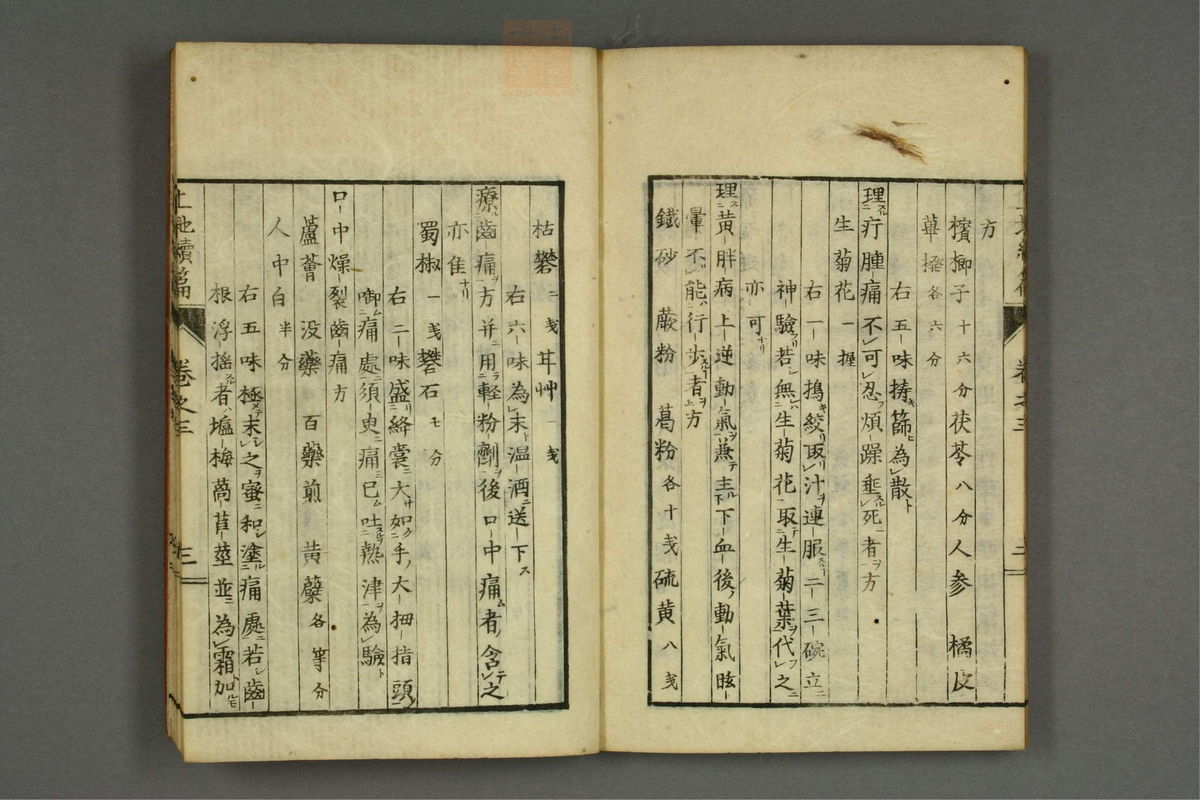 方
檳榔子十六分茯苓八分人参橘皮
蓽撥各六分
右五味擣篩為散
理疔腫痛不可忍煩躁垂死者方
生菊花一握
右一味搗絞取汁連服二三碗立
神驗若無生菊花取生菊葉代之
亦可
理黄胖病上逆動氣兼圭下下血後動氣眩
暈不能行歩者方
鐵砂蕨粉葛粉各十戔硫黄八戔
枯礬二戔耳艸一戔
右六味為末温酒送下
療齒痛方并用輕粉劑後口中痛者含之
亦隹
蜀椒一戔礬石七分
右二味盛絡裳大如手大拇指頭
啣痛處須臾痛已吐熱津為驗
口中燥裂齒痛方
蘆薈没藥百藥煎黄蘗各等分
人中白半分
右五味極末之蜜和塗痛處若齒
根浮揺者塩梅萵苣莖並為霜加
卷之三